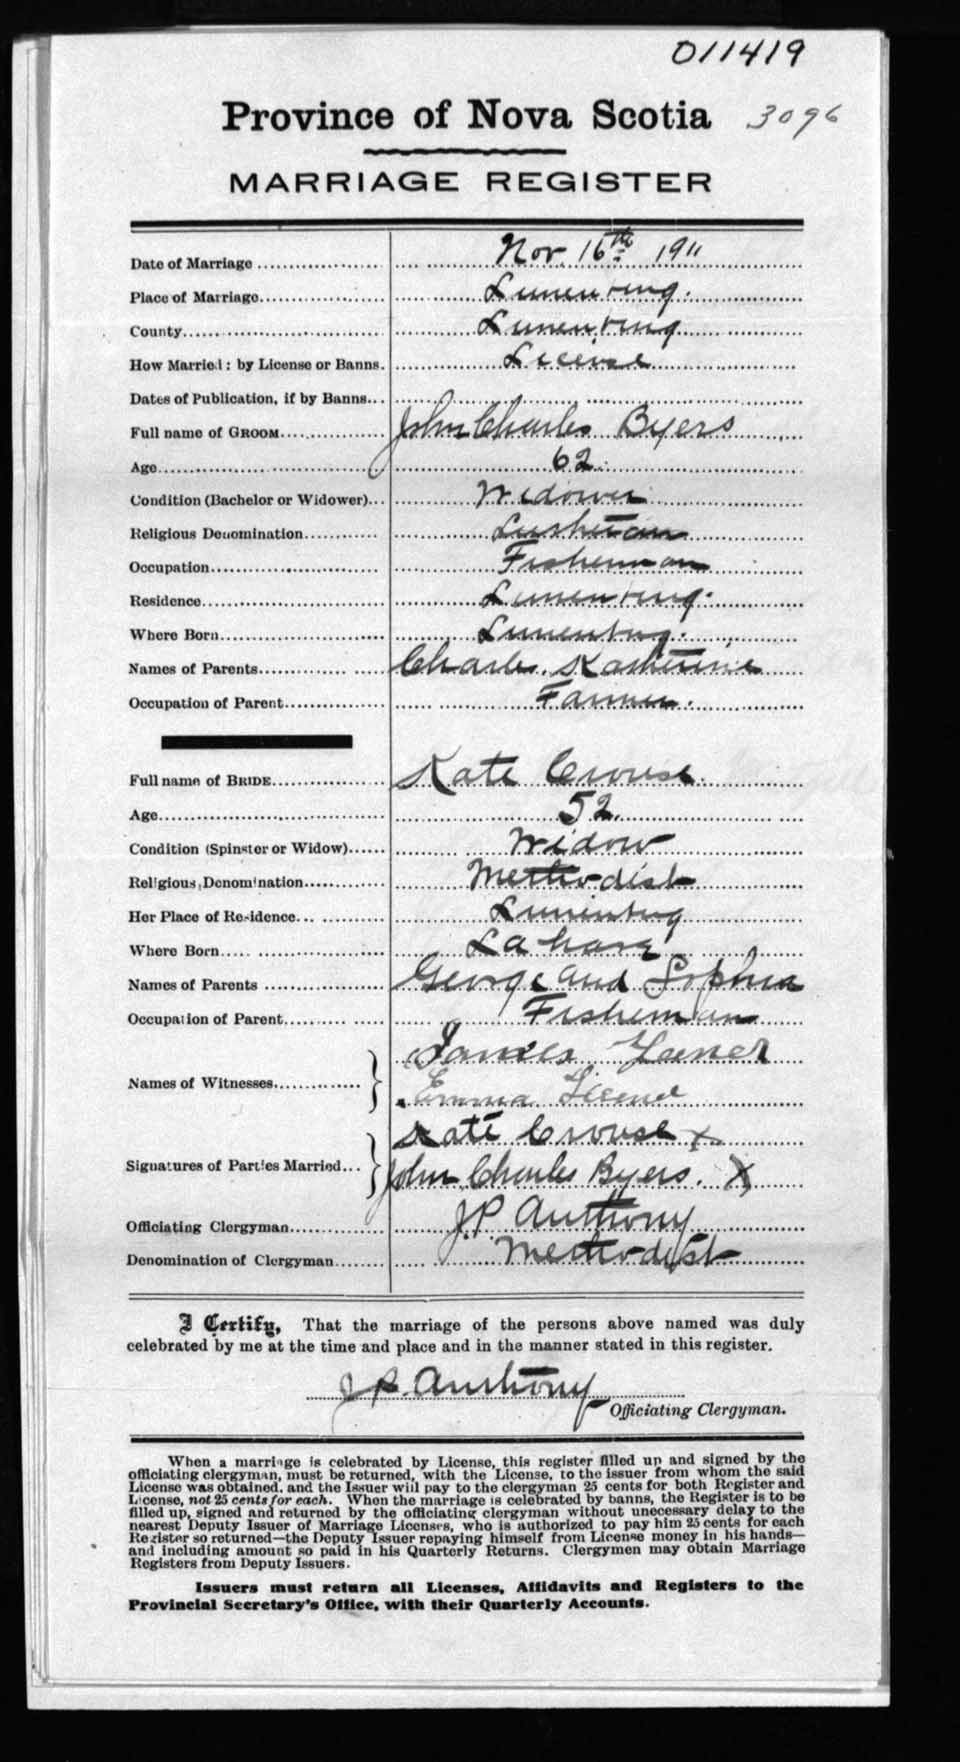 011419
Province of Nova Scotia 3096
MARRIAGE REGISTER
Date of Marriage Nov 16th 1911
Place of Marriage Lunenburg.
County Lunenburg
How Married: by License or Banns. License
Dates of Publication, if by Banns
Full name of GROOM John Charles Byers
Age 62
Condition (Bachelor or Widower) Widower
Religious Denomination Lutheran
Occupation Fisherman
Residence Lunenburg.
Where Born Lunenburg.
Names of Parents Charles Katherine
Occupation of Parent Farmer.
Full name of BRIDE Kate Crouse.
Age 52.
Condition (Spinster or Widow) Widow
Religious Denomination Methodist
Her Place of Residence Lunenburg
Where Born La Have
Names of Parents George and Sophia
Occupation of Parent Fisherman
James
Names of Witnesses
Emma
Kate Crouse x
Signatures of Parties Married
John Charles Byers. X
Officiating Clergyman J.P. Anthony
Denomination of Clergyman Methodist
I Certify, That the marriage of the persons above named was duly
celebrated by me at the time and place and in the manner stated in this register.
J.P. Anthony
Officiating Clergyman.
When a marriage is celebrated by License, this register filled up and signed by the
officiating clergyman, must be returned, with the License, to the issuer from whom the said
License was obtained, and the Issuer will pay to the clergyman 25 cents for both Register and
License, not 25 cents for each. When the marriage is celebrated by banns, the Register is to be
filled up, signed and returned by the officiating clergyman without unecessary delay to the
nearest Deputy Issuer of Marriage Licenses, who is authorized to pay him 25 cents for each
Register so returned—the Deputy Issuer repaying himself from License money in his hands—
and including amount so paid in his Quarterly Returns. Clergymen may obtain Marriage
Registers from Deputy Issuers.
Issuers must return all Licenses, Affidavits and Registers to the
Provincial Secretary's Office, with their Quarterly Accounts.